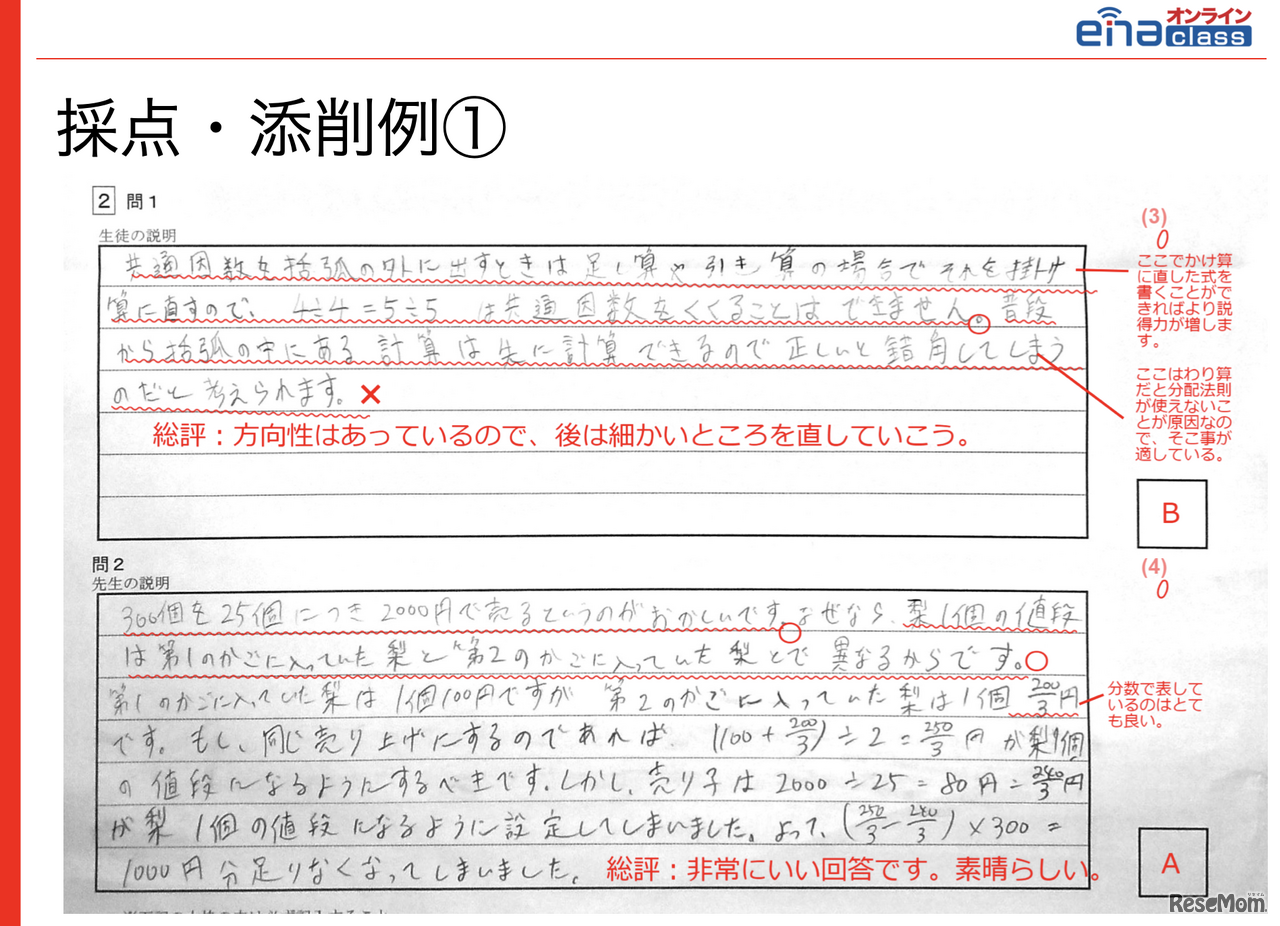 ena オンライン class
採点・添削例①
2 問1
生徒の説明
共通因数を括弧の外に出すときは足し算や引き算の場合でそれを掛け
算に直すので、4÷4=5÷5 は共通因数をくくることはできません。普段
から括弧の中にある計算は先に計算できるので正しいと錯角してしまう
のだと考えられます。×
総評：方向性はあっているので、後は細かいところを直していこう。
(3)
0
ここでかけ算
に直した式を
書くことがで
きればより説
得力が増しま
す。
ここはわり算
だと分配法則
が使えないこ
とが原因なの
で、そこ事が
適している。
B
問2
先生の説明
300個を25個につき2000円で売るというのがおかしいです。なぜなら、梨1個の値段
は第1のかごに入っていた梨と第2のかごに入っていた梨とで異なるからです。
第1のかごに入っていた梨は1個100円ですが 第2のかごに入っていた梨は1個 200/3円
です。もし、同じ売り上げにするのであれば、(100+200/3)÷2=250/3円が梨1個
の値段になるようにするべきです。しかし、売り子は2000÷25=80円=240/3円
が梨1個の値段になるように設定してしまいました。よって、(250/3-240/3)×300=
1000円分足りなくなってしまいました。
総評：非常にいい回答です。素晴らしい。
(4)
0
分数で表して
いるのはとて
も良い。
A
ReseMom